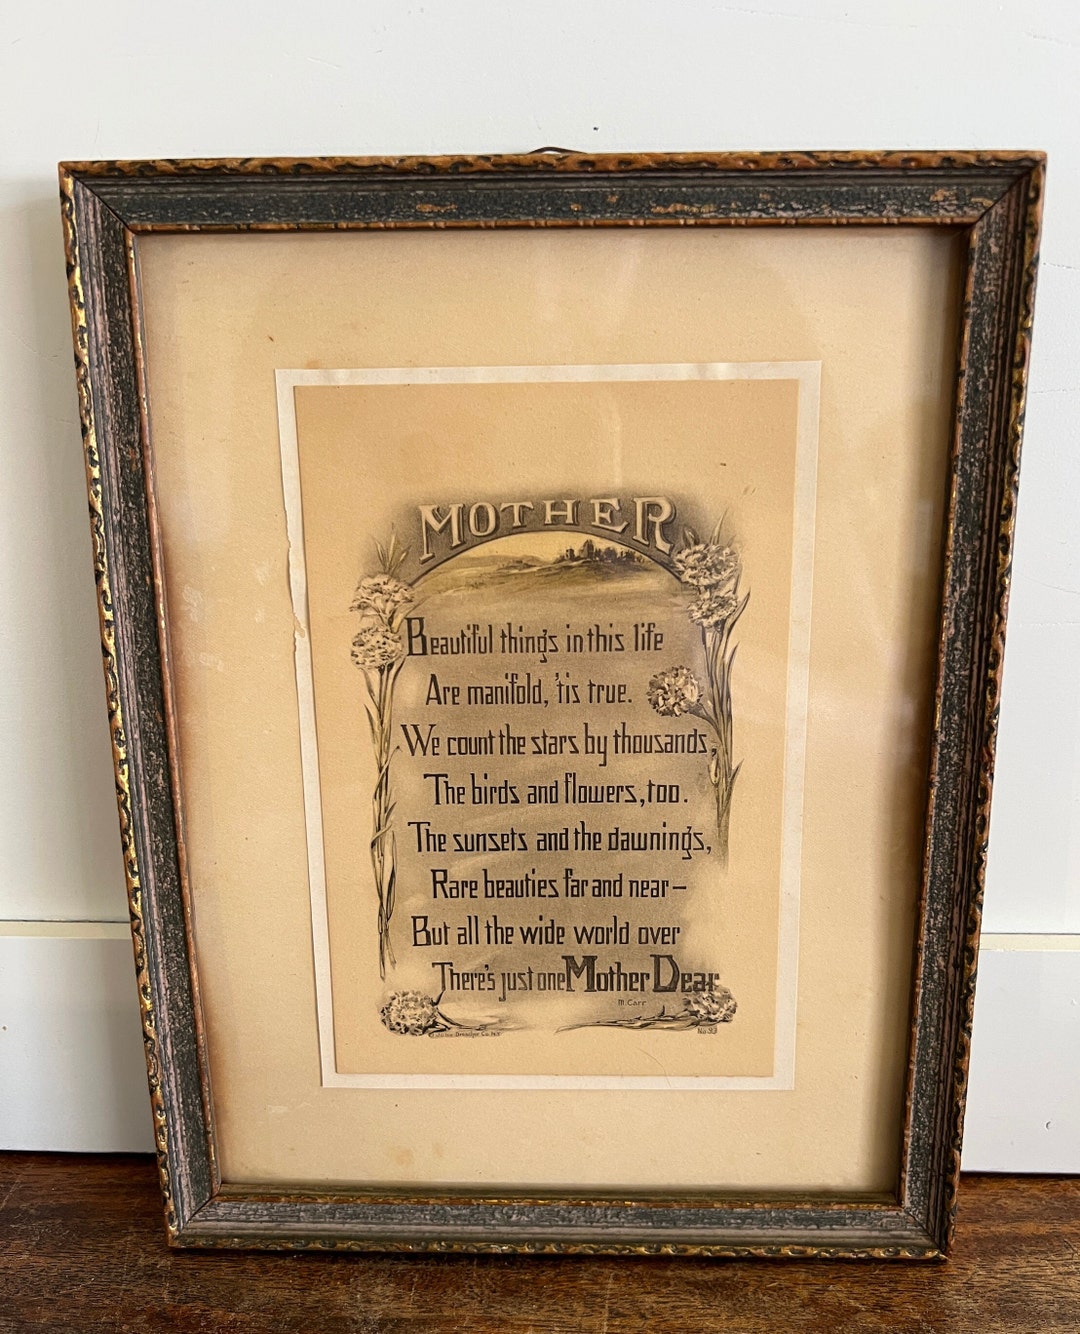 MOTHER
Beautiful things in this life
Are manifold, 'tis true.
We count the stars by thousands,
The birds and flowers, too.
The sunsets and the dawnings,
Rare beauties far and near—
But all the wide world over
There's just one Mother Dear
M. Carr
Co. N.Y.
No. 93